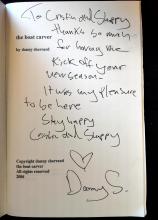 To Cristin and Shappy
thanks so much
the boat carver
for having me
by danny sherrard
Kick off your
new season.
It was my pleasure
to be here
Stay happy
and Shappy
Copyright danny sherrard
the boat carver
All rights reserved
2006
Danny S.